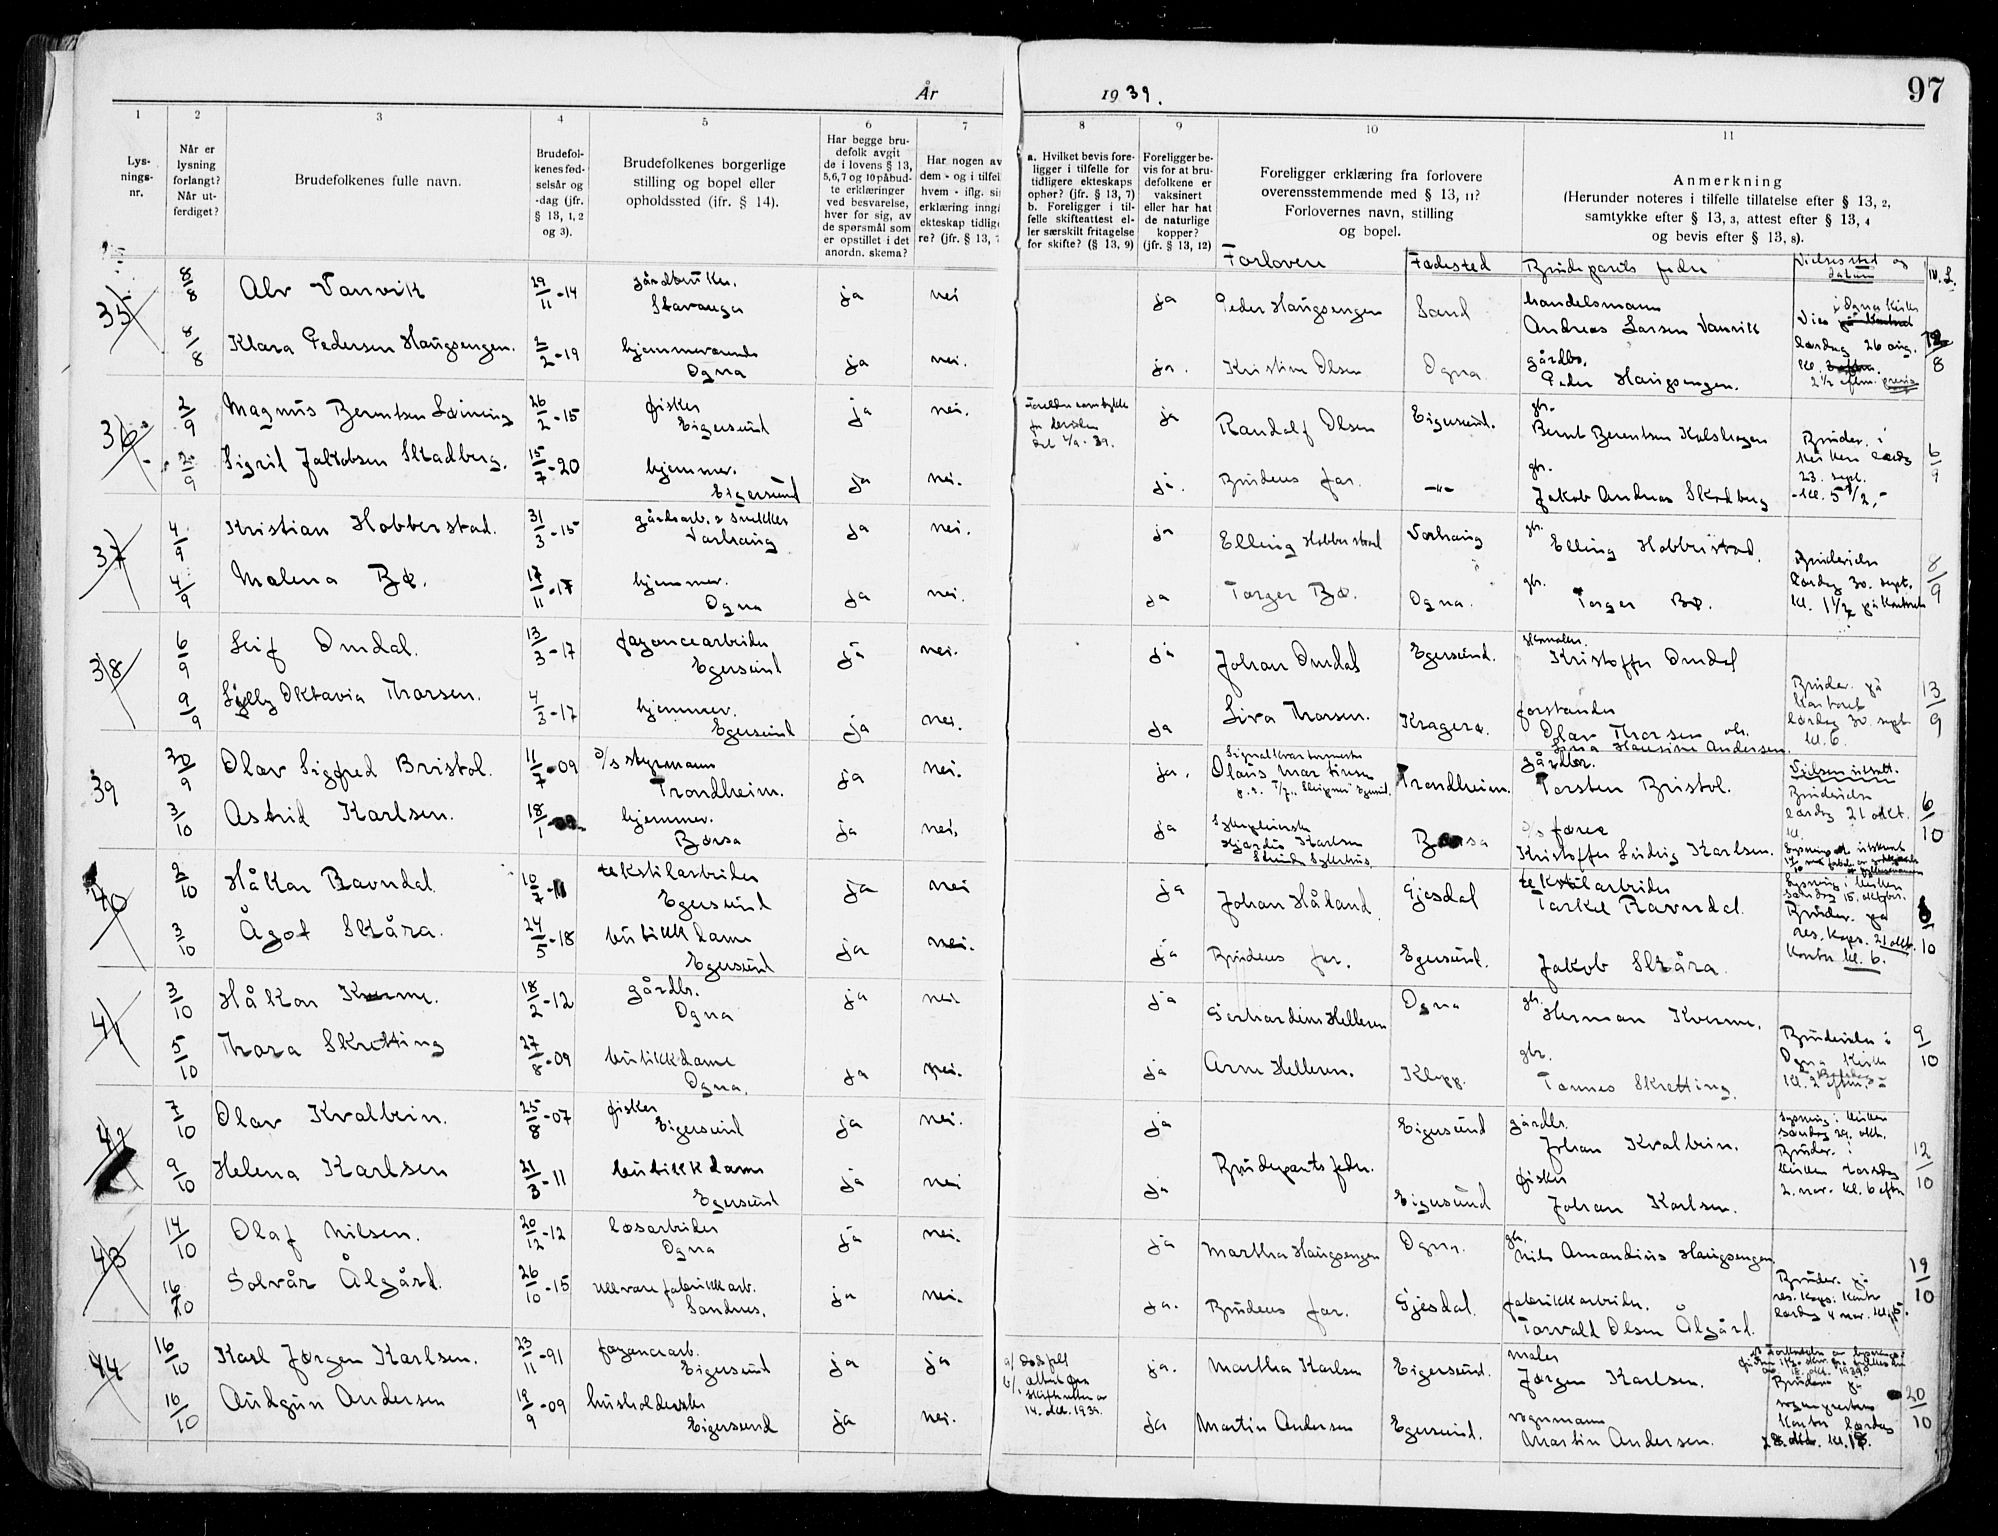 År 1939.
97
1 2 3 4 5 6 7 8 9 10 11
Lys-
nings-
nr.
Når er
lysning
forlangt?
Når ut-
ferdiget?
Brudefolkenes fulle navn.
Brudefol-
kenes fød-
selsår og
-dag (jfr.
§ 13, 1, 2
og 3).
Brudefolkenes borgerlige
stilling og bopel eller
opholdssted (ifr. § 14).
Har begge bru-
defolk avgit
de i lovens § 13,
5,6,7 og 10 påbud-
te erklæringer
ved besvarelse,
hver for sig, av
de spørsmål som
er opstillet i det
anordn. skema?
Har nogen av
dem - og i tilfel
hvem - iflg. si
erklæring inngå
ekteskap tidlige
re? (jfr. § 13, 7
a. Hvilket bevis fore-
ligger i tilfelle for
tidligere ekteskaps
ophør? (jfr. § 13, 7)
b. Foreligger i til-
felle skifteattest el-
ler særskilt fritagelse
for skifte? (§ 13, 9)
Foreligger be-
vis for at bru-
defolkene er
vaksinert
eller har hat
de naturlige
kopper?
(jfr. § 13, 12)
Foreligger erklæring fra forlovere
overensstemmende med § 13, 11?
Forlovernes navn, stilling
og bopel.
Anmerkning
(Herunder noteres i tilfelle tillatelse efter § 13, 2,
samtykke efter § 13, 3, attest efter § 13, 4
og bevis efter § 13, 8).
Forlovere Fødested Brudeparets fedre Vielsessted og
datum
35 8/8 Alv Vanvik 29/11-14 gårdbruker.
Stavanger ja nei ja Peder Haugsengen Sand handelsmann
Andreas Larsen Vanvik
i Ogna kirke
8/8 Klara Pedersen Haugsengen. 2/2-19 hjemmeværende
Ogna ja nei. ja. Kristine Olsen Ogna gårdbr.
Peder Haugsengen.
lørdag 26 aug.
2 1/2 eftm. presis
36 2/9 Magnus Berentsen Leining 26/2-15 fisker
Eigersund ja nei. ja Randolf Olsen Eigersund. gbr.
Bernt Berentsen
2/9 Sigrid Jakobsen Skadberg. 15/7-20 hjemmev.
Eigersund ja nei. ja. Brudens far. -"- gbr.
Jakob Andreas Skadberg
Bruder. i
kirken lørdag
23. sept.
kl. 5 1/2,-
6/9
37 4/9 Kristian Hobberstad. 31/3-15 gårdsarb. & snekker
Varhaug ja nei. ja Elling Hobberstad Varhaug gbr.
Elling Hobberstad.
4/9 Malena Bø. 17/11-17 hjemmev.
Ogna ja nei. ja Torger Bø. Ogna. gbr.
Torger Bø.
Brudevielse
lørdag 30. sept.
kl. 1 1/2 på kontoret
8/9
38 6/9 Leif Omdal. 13/3-17 fayancearbeider
Egersund ja nei. ja Johan Omdal Egersund. Kristoffer Omdal
9/9 Oktavia Thorsen. 4/3-17 hjemmev.
Egersund ja nei. ja Thorsen. Kragerø. forstander
Olav Thorsen
Bruder. på
kontoret
lørdag 30. sept.
kl. 6.
13/9
39 30/9 Olav Sigfred Bristol. 11/7-09 styrmann
Trondheim. ja nei. ja. Olaus Martinsen Trondheim. gårdbr.
Torsten Bristol.
3/10 Astrid Karlsen. 18/1 hjemmev.
Børsa ja nei. ja Karlsen Børsa Kristoffer Ludvig Karlsen.
Brudevielse
lørdag 21 okt.
kl.
6/10
40 2/10 Håkon Ravndal. 10/7-11 tekstilarbeider
Egersund ja nei ja Johan Håland. Gjesdal tekstilarbeider
Torkel Ravndal.
3/10 Ågot Skåra. 24/5-18 butikkdame
Egersund ja nei. ja Brudens far. Egersund. Jakob Skåra.
Lysning i kirken
søndag 15. oktober.
Bruder. på
res. kaps. 21 okt.
kontor kl. 6.
41 3/10 Håkon Kverme. 18/2-12 gårdbr.
Ogna ja nei ja Gerhardine Helleren Ogna gbr.
Herman Kverme.
5/10 Thora Skretting 27/8-09 butikkdame
Ogna. ja nei. ja Arne Helleren. Klepp. gbr.
Tønnes Skretting.
Brudevielse i
Ogna kirke
kl. 2 eftm.
9/10
42 7/10 Olav Kvalbein. 25/8-07 fisker
Eigersund ja nei. ja Eigersund gårdbr.
Johan Kvalbein.
9/10 Helena Karlsen 21/3-11 butikkdame
Egersund ja nei ja Brudeparets fedre. Eigersund fisker
Johan Karlsen.
Lysning i kirken
søndag 29. okt.
Bruder. i
kirken torsdag
2. nov. kl. 6 eftm
12/10
43 14/10 Olaf Nilsen. 20/12-12 løsarbeider
Ogna ja nei. ja Martha Haugsengen Ogna. gbr.
Nils Amandius Haugsengen
16/10 Solvår Ålgård. 26/10-15 ullvarefabrikkarb.
Sandnes. ja nei. ja. Brudens far. Gjesdal. fabrikkarbeider.
Torvald Olsen Ålgård.
Bruder. på
res. kaps. kontor
lørdag 4 nov. kl. 5.
19/10
44 16/10 Karl Jørgen Karlsen. 23/11-91 fayancearb.
Eigersund ja ja ja. Martha Karlsen Eigersund. maler
Jørgen Karlsen.
16/10 Audgun Andersen 19/9-09 husholderske
Eigersund ja nei. ja Martin Andersen Egersund. vognmann
Martin Andersen.
Bruder på
sogneprestens
kontor lørdag
20/10